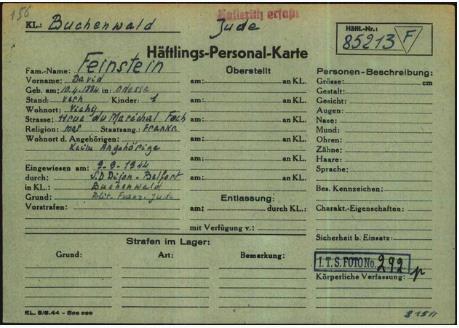 156
KL: Buchenwald Jude
Häftl.-Nr.:
85213 F
Häftlings-Personal-Karte
Fam.-Name: Feinstein
Vorname: David
Geb. am: 10.4.1884 in: Odessa
Stand: verh Kinder: 1
Wohnort: Vichy
Strasse: rue du Maréchal Foch
Religion: mos Staatsang.: Frankr.
Wohnort d. Angehörigen:
Keine Angehörige
Eingewiesen am: 9-9-1944
durch: S.D Dijon-Belfort
in KL.: Buchenwald
Grund: Polit. Franz. Jude
Vorstrafen:
Überstellt
am: an KL.
am: an KL.
am: an KL.
am: an KL.
am: an KL.
am: an KL.
Entlassung:
am: durch KL.:
mit Verfügung v.:
Personen-Beschreibung:
Grösse: cm
Gestalt:
Gesicht:
Augen:
Nase:
Mund:
Ohren:
Zähne:
Haare:
Sprache:
Bes. Kennzeichen:
Charakt.-Eigenschaften:
Sicherheit b. Einsatz:
I.T.S. FOTO No. 292
Körperliche Verfassung:
Strafen im Lager:
Grund: Art: Bemerkung: